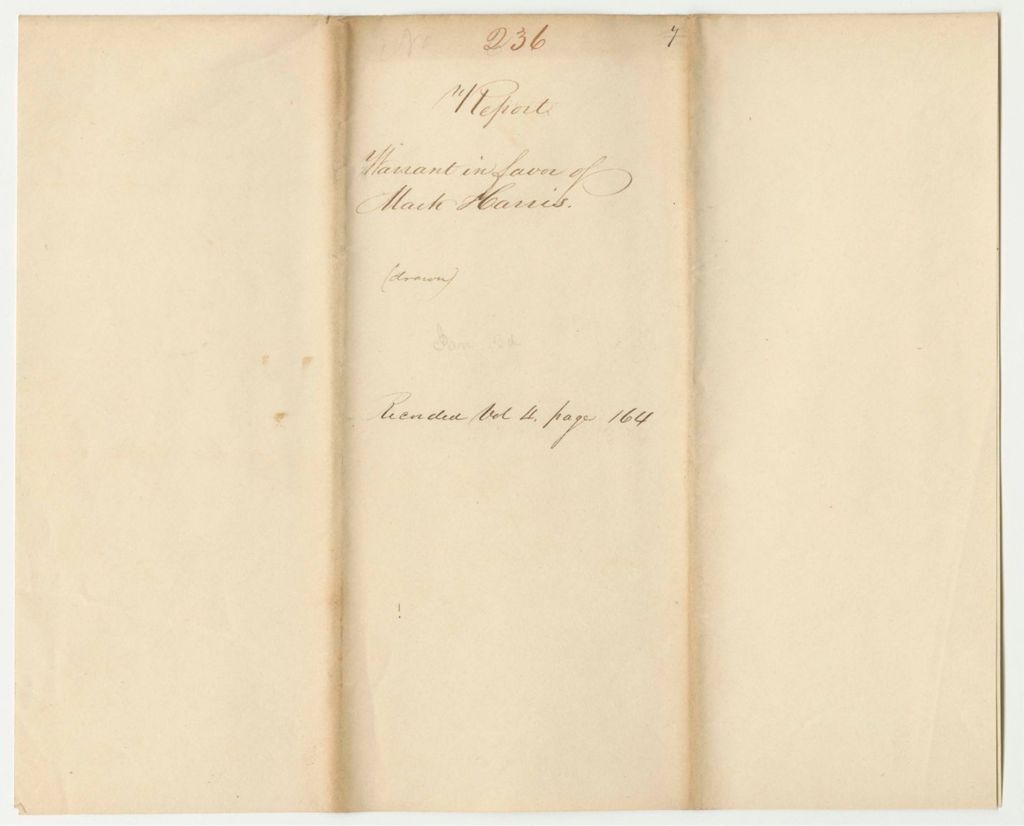 236 7
Report
Warrant in favor of
Mark Harris.
(drawn)
Recorded Vol 4. page 164